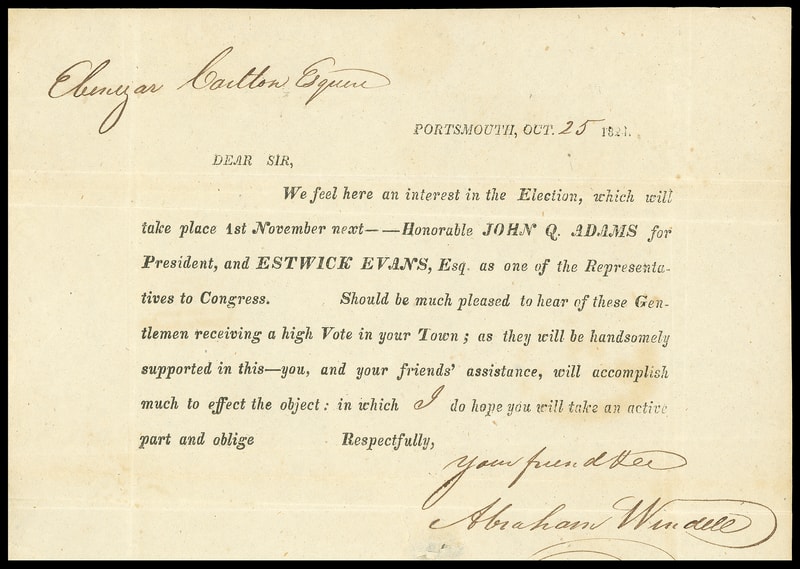 Ebenezar Carlton Esquire
PORTSMOUTH, OCT. 25 1824.
DEAR SIR,
We feel here an interest in the Election, which will
take place 1st November next——Honorable JOHN Q. ADAMS for
President, and ESTWICK EVANS, Esq. as one of the Representa-
tives to Congress. Should be much pleased to hear of these Gen-
tlemen receiving a high Vote in your Town; as they will be handsomely
supported in this—you, and your friends' assistance, will accomplish
much to effect the object: in which I do hope you will take an active
part and oblige Respectfully,
your friend &c
Abraham Wendell